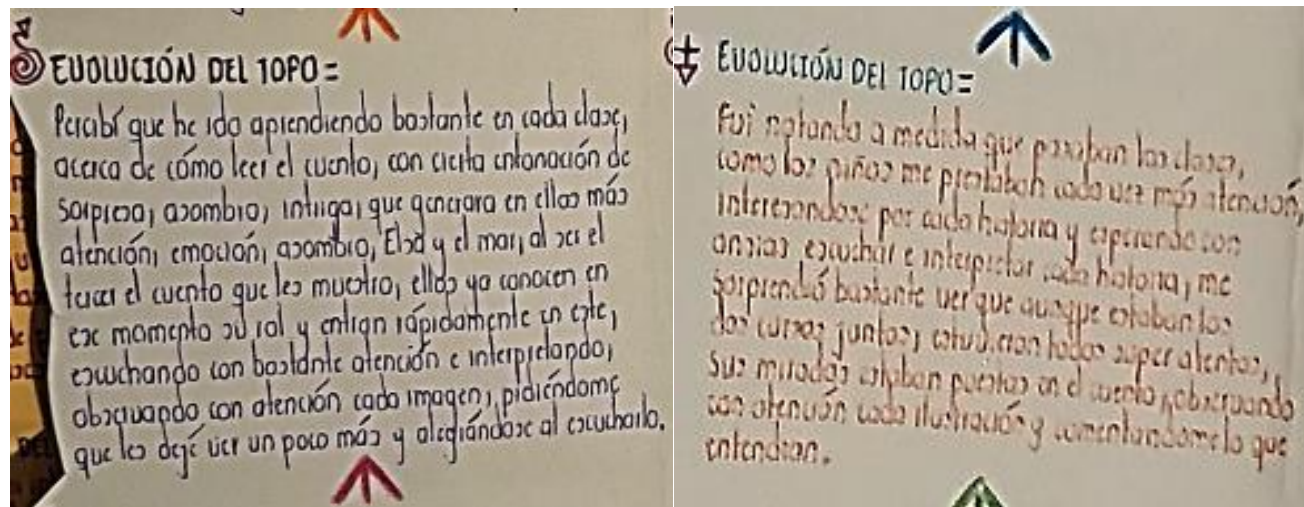 EVOLUCIÓN DEL TOPO=
Percibí que he ido aprendiendo bastante en cada clase,
acerca de cómo leer el cuento, con cierta entonación de
sorpresa, asombro, intriga, que generara en ellos más
atención, emoción, asombro, Elsa y el mar, al ser el
tercer el cuento que les muestro, ellos ya conocen en
ese momento su rol y entran rápidamente en este,
escuchando con bastante atención e interpretando,
observando con atención cada imagen, pidiéndome
que les dejé ver un poco más y alegrándose al escucharlo.
EVOLUCIÓN DEL TOPO=
Fui notando a medida que pasaban las clases,
como los niños me prestaban cada vez más atención,
interesandose por cada historia y esperando con
ansias escuchar e interpretar cada historia, me
sorprendió bastante ver que aunque estaban los
dos cursos juntos, estuvieron todos super atentos,
sus miradas estaban puestas en el cuento, observando
con atención cada ilustración y comentandome lo que
entendian.